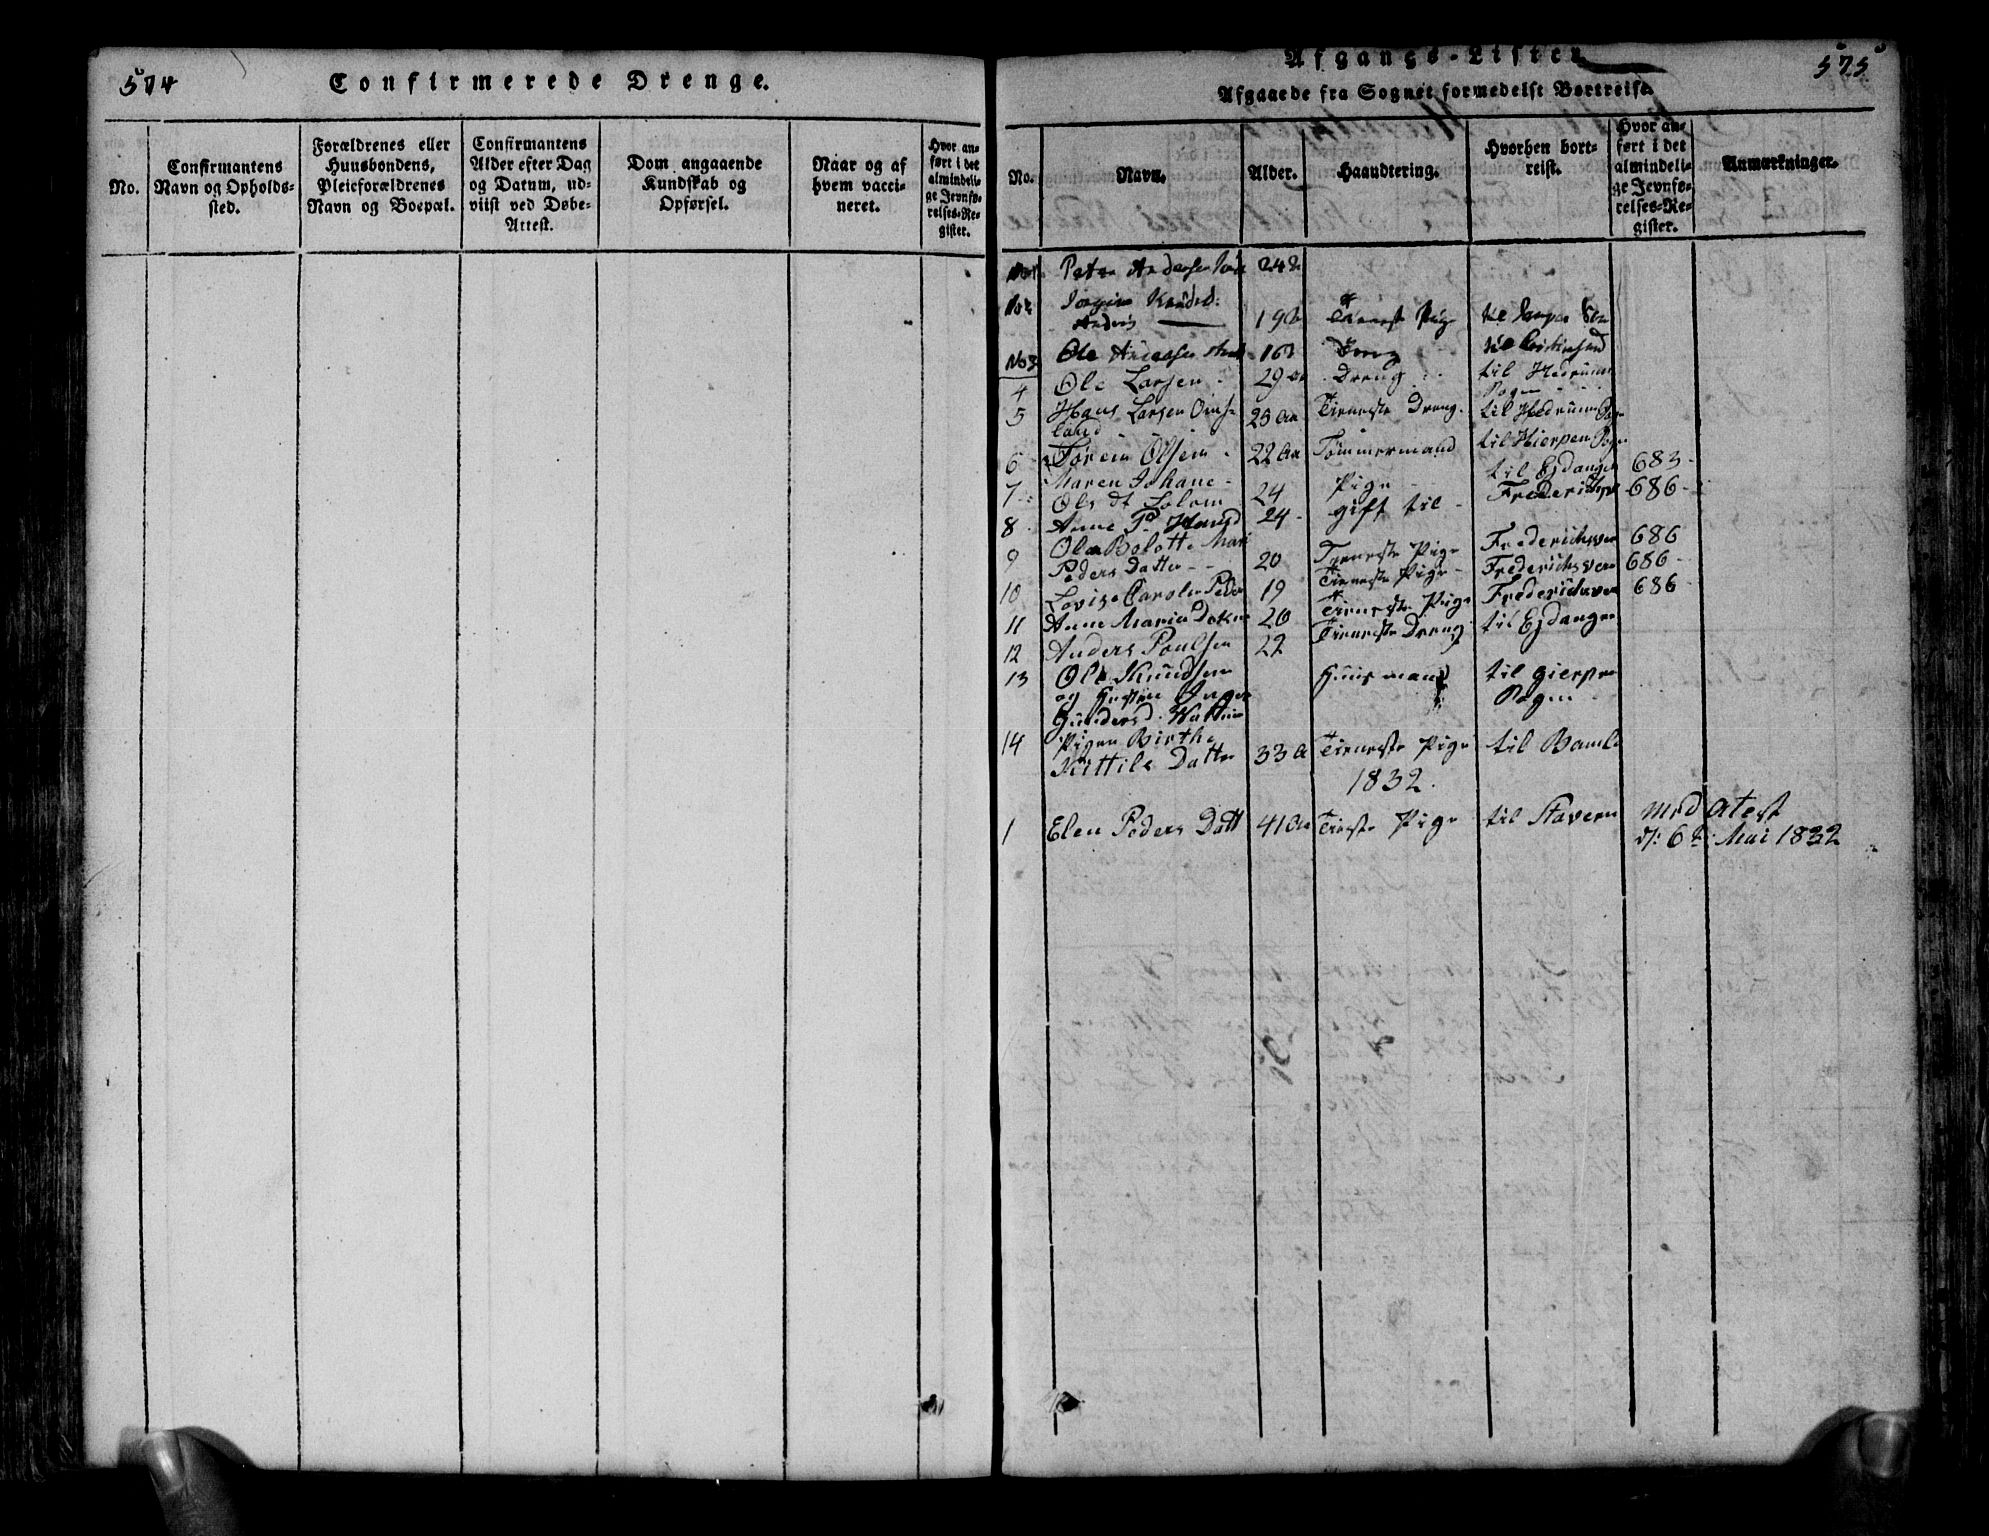 574
Confirmerede Drenge.
No.
Confirmantens
Navn og Opholds-
sted.
Forældrenes eller
Huusbondens,
Pleieforældrenes
Navn og Boepæl.
Confirmantens
Alder efter Dag
og Datum, ud-
viist ved Døbe-
Attest.
Dom angaaende
Kundskab og
Opførsel.
Naar og af
hvem vacci-
neret.
Hvor an-
ført i det
almindeli-
ge Jevnfø-
relses-Re-
gister.
575
Afgangs-Lister.
Afgaaede fra Sognet formedelst Bortreise.
No.
Navn.
Alder.
Haandtering.
Hvorhen bort-
reist.
Hvor an-
ført i det
almindeli-
ge Jevnfø-
relses-Re-
gister.
Anmærkninger.
No 1 Peter Andersen 24
No 2 Knudsd: 19 Tieneste Pige
No 3 Ole Andersen 16 Dreng
4 Ole Larsen 29 Dreng til Hedrum
Sogn
5 Hans Larsen Oms-
land 25 Aar Tieneste Dreng til Hedrum Sogn
6 Olsen 22 Aar Tømmermand til Hierpen Sogn
7 Maren Johane
Ols dt 24 Pige til Ejdanger 683
8 Anne P. Hansd 24 gift til Frederichsv 686
9 Ole Bolotte Mari
Peders Datter 20 Tieneste Pige Frederichsver 686
10 Lovise Caroline Peder 19 Tieneste Pige Frederichsver 686
11 Anne Maria 20 Tieneste Pige Frederichsver 686
12 Anders Poulsen 22 Tieneste Dreng til Ejdanger
13 Ole Knudsen Huusmand til Gierpen
og Hustrue Inger Sogn
Gundersd.
14 Pigen Birthe
Kittils Datter 33 A Tieneste Pige til Bamle
1832.
1 Elen Peders Datt 41 Aar Tieneste Pige til Stavern Med Atest
d: 6te Mai 1832